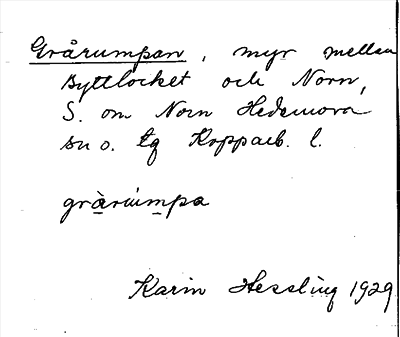 Grårumpan, myr mellan
Byttlocket och Norn,
S. om Norn Hedemora
sn o. tg Kopparb. l.
gràrúmpa
Karin Hessling 1929